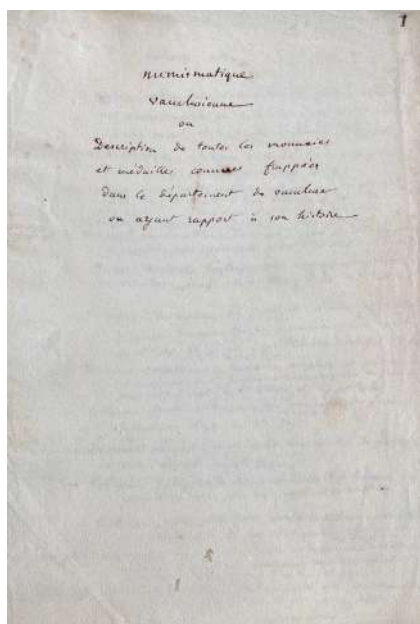 1
numismatique
vauclusienne
ou
Description de toutes les monnaies
et médailles connues frappées
dans le département de vaucluse
ou ayant rapport à son histoire